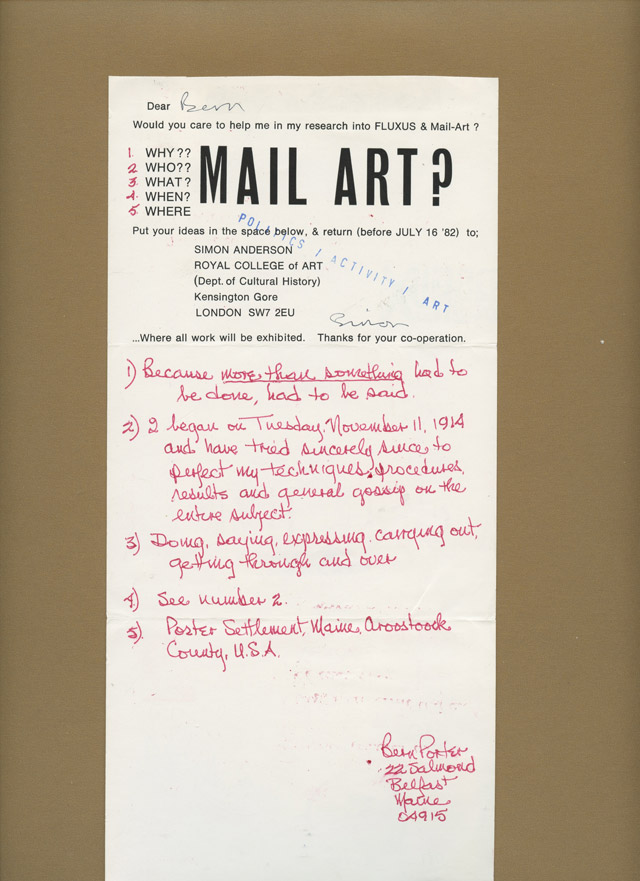 Dear Bern
Would you care to help me in my research into FLUXUS & Mail-Art ?
1. WHY??
2 WHO??
3. WHAT?
4. WHEN?
5 WHERE
MAIL ART?
Put your ideas in the space below, & return (before JULY 16 '82) to;
POLITICS / ACTIVITY / ART
SIMON ANDERSON
ROYAL COLLEGE of ART
(Dept. of Cultural History)
Kensington Gore
LONDON SW7 2EU
Simon
...Where all work will be exhibited. Thanks for your co-operation.
1) Because more than something had to
be done, had to be said.
2) I began on Tuesday, November 11, 1914
and have tried sincerely since to
perfect my techniques, procedures,
results and general gossip on the
entire subject.
3) Doing, saying, expressing, carrying out,
getting through and over
4) See number 2.
5) Porter Settlement, Maine, Aroostook
County, U.S.A.
Bern Porter
22 Salmond
Belfast
Maine
04915